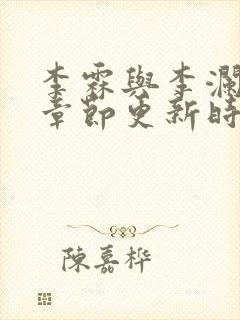 李霖與李瀾
章節更新時
陳嘉樺